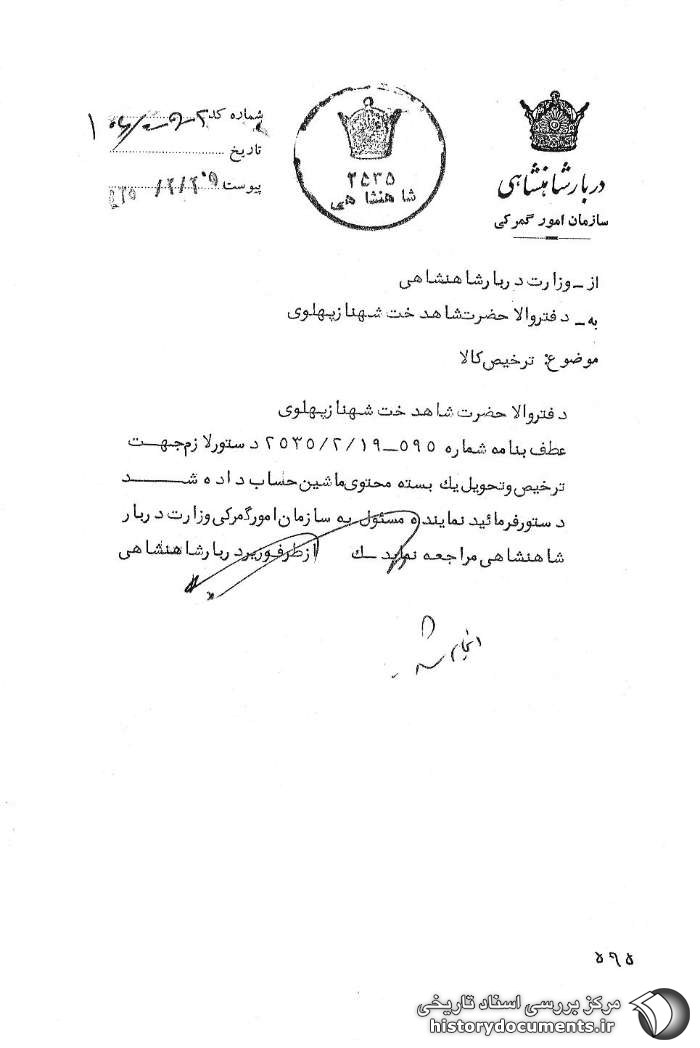 دربار شاهنشاهی
سازمان امور گمرکی
۲۵۳۵
شاهنشاهی
شماره کد
تاریخ
پیوست
از ـ وزارت دربار شاهنشاهی
به ـ دفتر والاحضرت شاهدخت شهناز پهلوی
موضوع: ترخیص کالا
دفتر والاحضرت شاهدخت شهناز پهلوی
عطف بنامه شماره ۵۹۵ـ۲۵۳۵/۲/۱۹ دستور لازم جهت
ترخیص و تحویل یك بسته محتوی ماشین حساب داده شد
دستور فرمائید نماینده مسئول به سازمان امور گمرکی وزارت دربار
شاهنشاهی مراجعه نماید ـ ك از طرف وزیر دربار شاهنشاهی
انجام شد
۵۹۵
مرکز بررسی اسناد تاریخی
historydocuments.ir